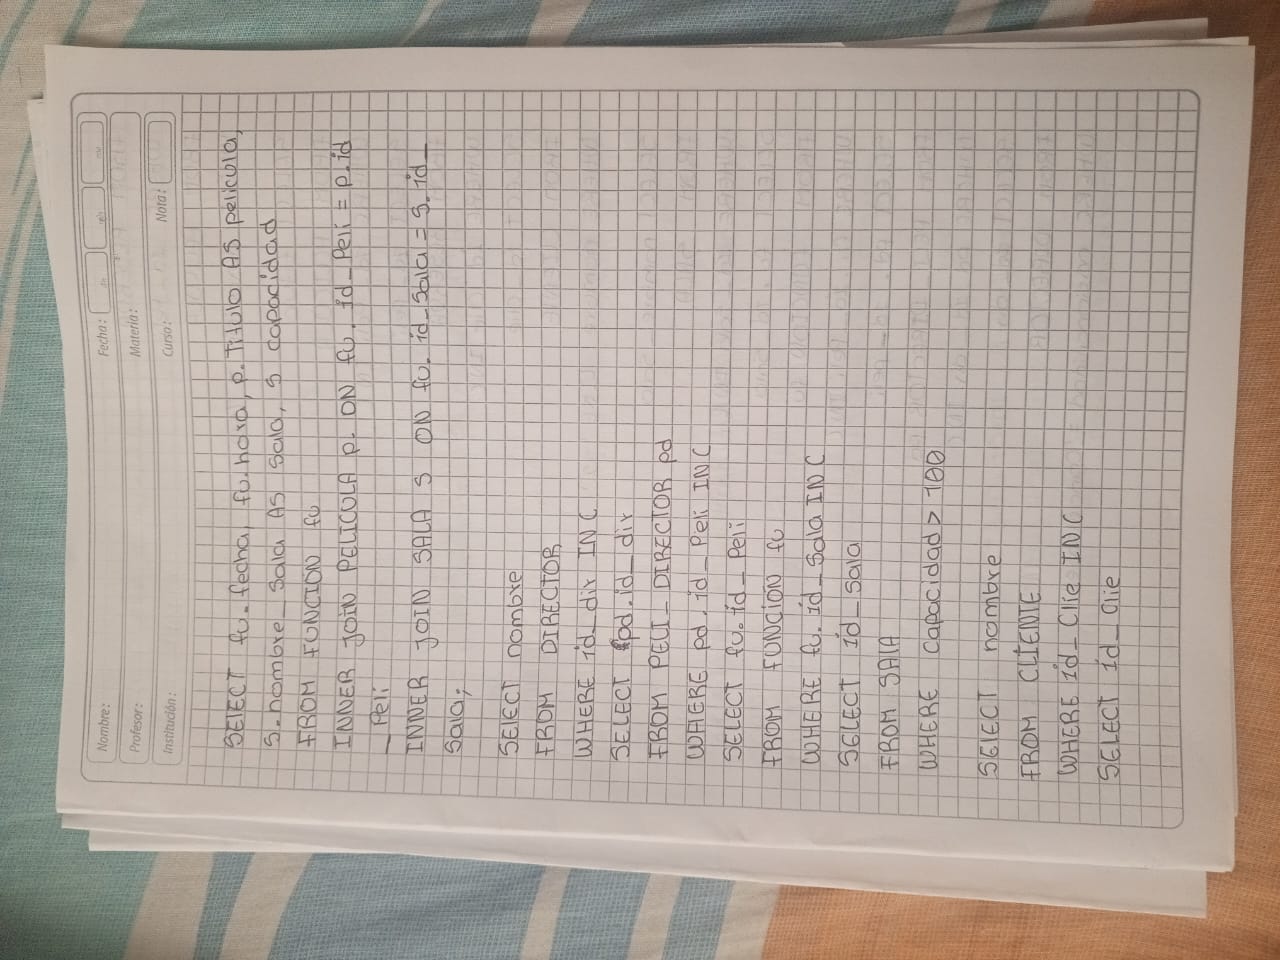 Nombre: Fecha:
Profesor: Materia:
Institución: Curso: Nota:
SElECT fu.fecha, fu.hora, p.Titulo AS pelicula,
S.nombre_Sala AS Sala, S capacidad
FROM FUNCION fu
INNER JOiN PELICULA p. ON fu.id_Peli = p.id
_Peli
INNER JOIN SALA S ON fu.id_Sala = S.id_
Sala;
SElECT nombre
FROM DIRECTOR
WHERE id_dir IN C
SELECT pd.id_dir
FROM PELI_DIRECTOR pd
WHERE pd.id_Peli IN C
SELECT fu.id_Peli
FROM FUNCION fu
WHERE fu.id_Sala IN C
SELECT id_Sala
FROM SAlA
WHERE capacidad > 100
SElECT nombre
FROM CLIENTE
WHERE id_Clie IN C
SELECT id_Clie